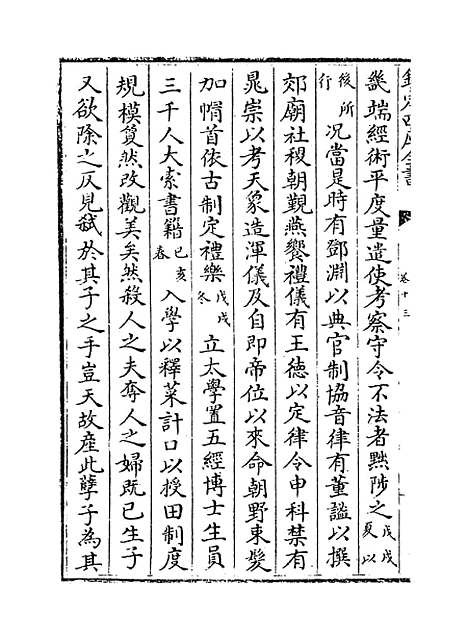 欽定四庫全書
卷十三
畿端經術平度量遣使考察守令不法者黜陟之戊戌夏以
後所行況當是時有鄧淵以典官制協音律有董謐以撰
郊廟社稷朝覲燕饗禮儀有王德以定律令申科禁有
晁崇以考天象造渾儀及自即帝位以來命朝野束髮
加㡌首依古制定禮樂戊戌冬立太學置五經博士生員
三千人大索書籍己亥春入學以釋菜計口以授田制度
規模煥然改觀美矣然殺人之夫奪人之婦既已生子
又欲除之仄見弑於其子之手豈天故産此孽子為其